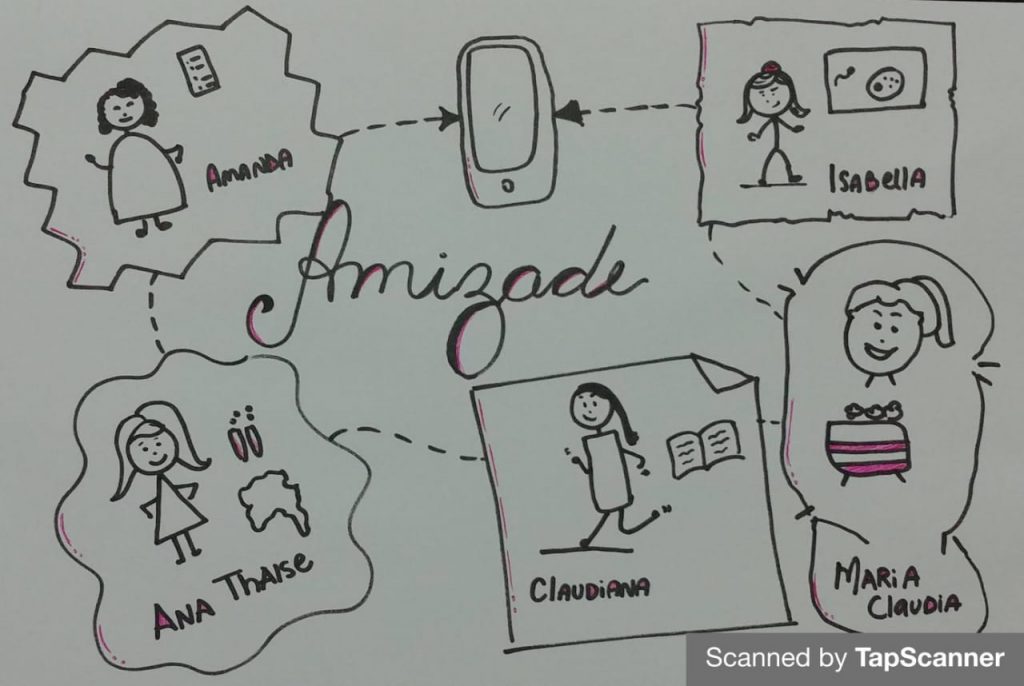 Amanda
Isabella
Amizade
Ana Thaise
Claudiana
Maria
Claudia
Scanned by TapScanner